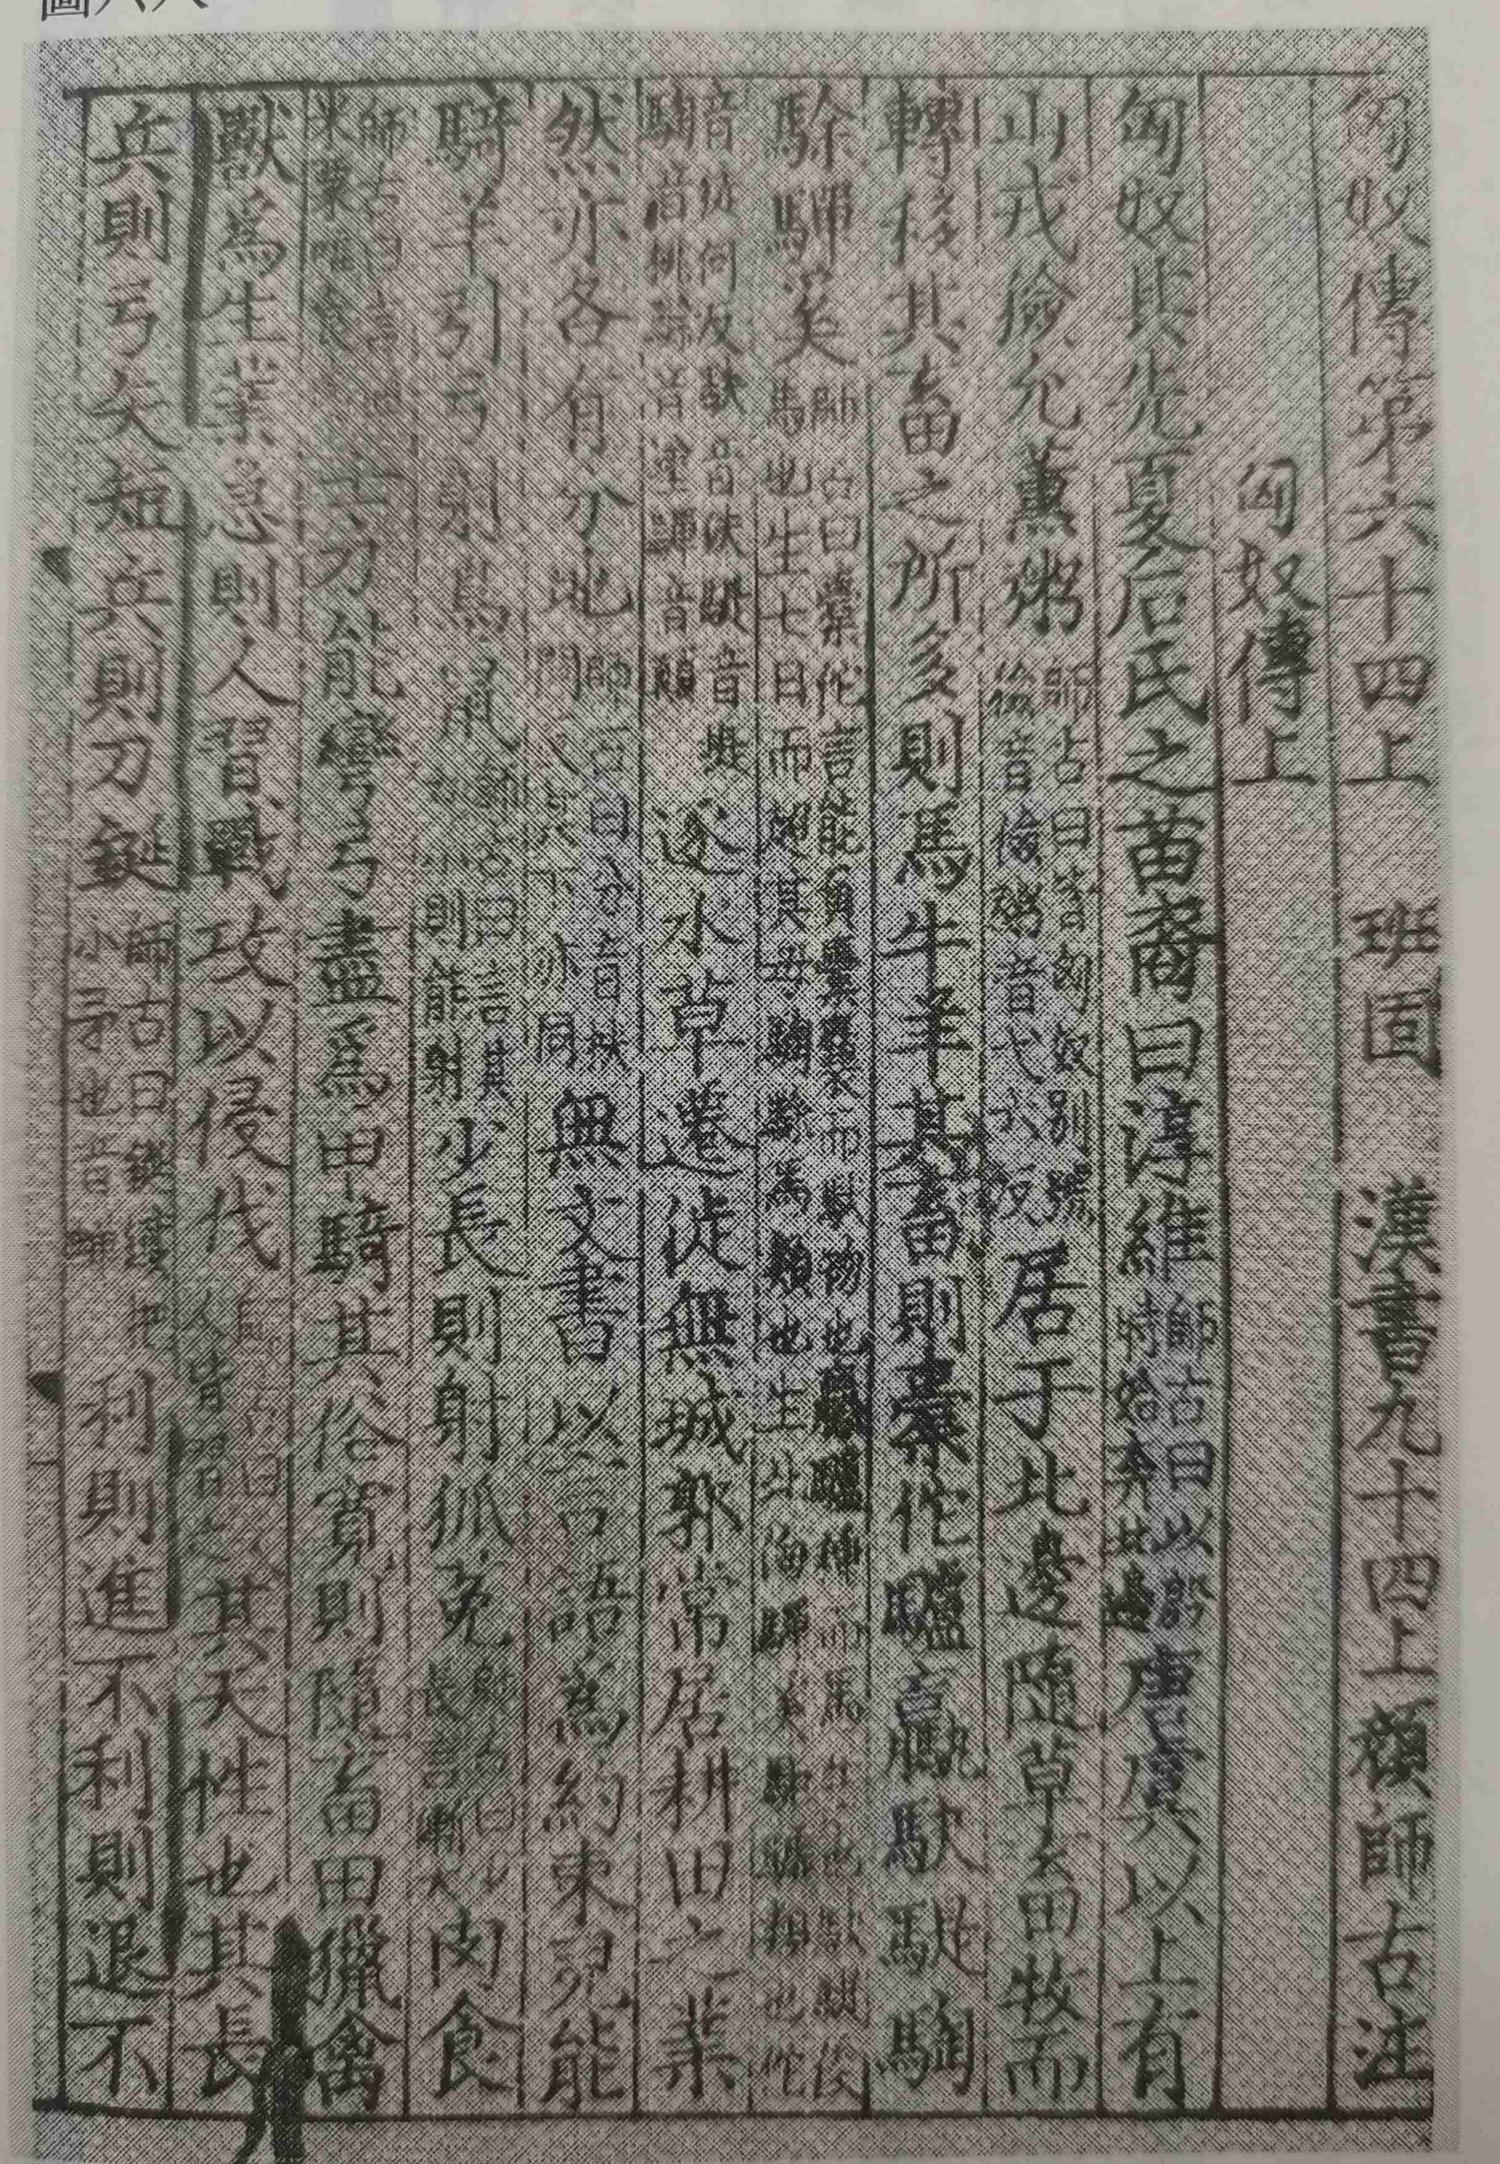 圖六六
匈奴傳第六十四上 班固 漢書九十四上 顏師古注
匈奴傳上
匈奴其先夏后氏之苗裔曰淳維師古曰以殷時始奔北邊唐虞以上有
山戎獫允薰粥師古曰皆匈奴別號獫音險粥音弋六反居于北邊隨草畜田牧而
轉移其畜之所多則馬牛羊其畜則橐佗驢驘駃騠騊
駼驒奚師古曰橐佗言能負橐囊而馱物也馬也生七日而超其母騊駼馬類也生北海驒
音決騠音提騊音桃駼音塗驒音顛逐水草遷徙無城郭常居耕田之業
然亦各有分地師古曰分音扶問反其下亦同無文書以言語為約束兒能
騎羊引弓射鳥鼠師古曰言其則能射少長則射狐兔肉食
師古曰士力能彎弓盡為甲騎其俗寬則隨畜田獵禽
獸為生業急則人習戰攻以侵伐師古曰人皆習之其天性也其長
兵則弓矢短兵則刀鋋師古曰鋋鐵把小矛也音蟬利則進不利則退不